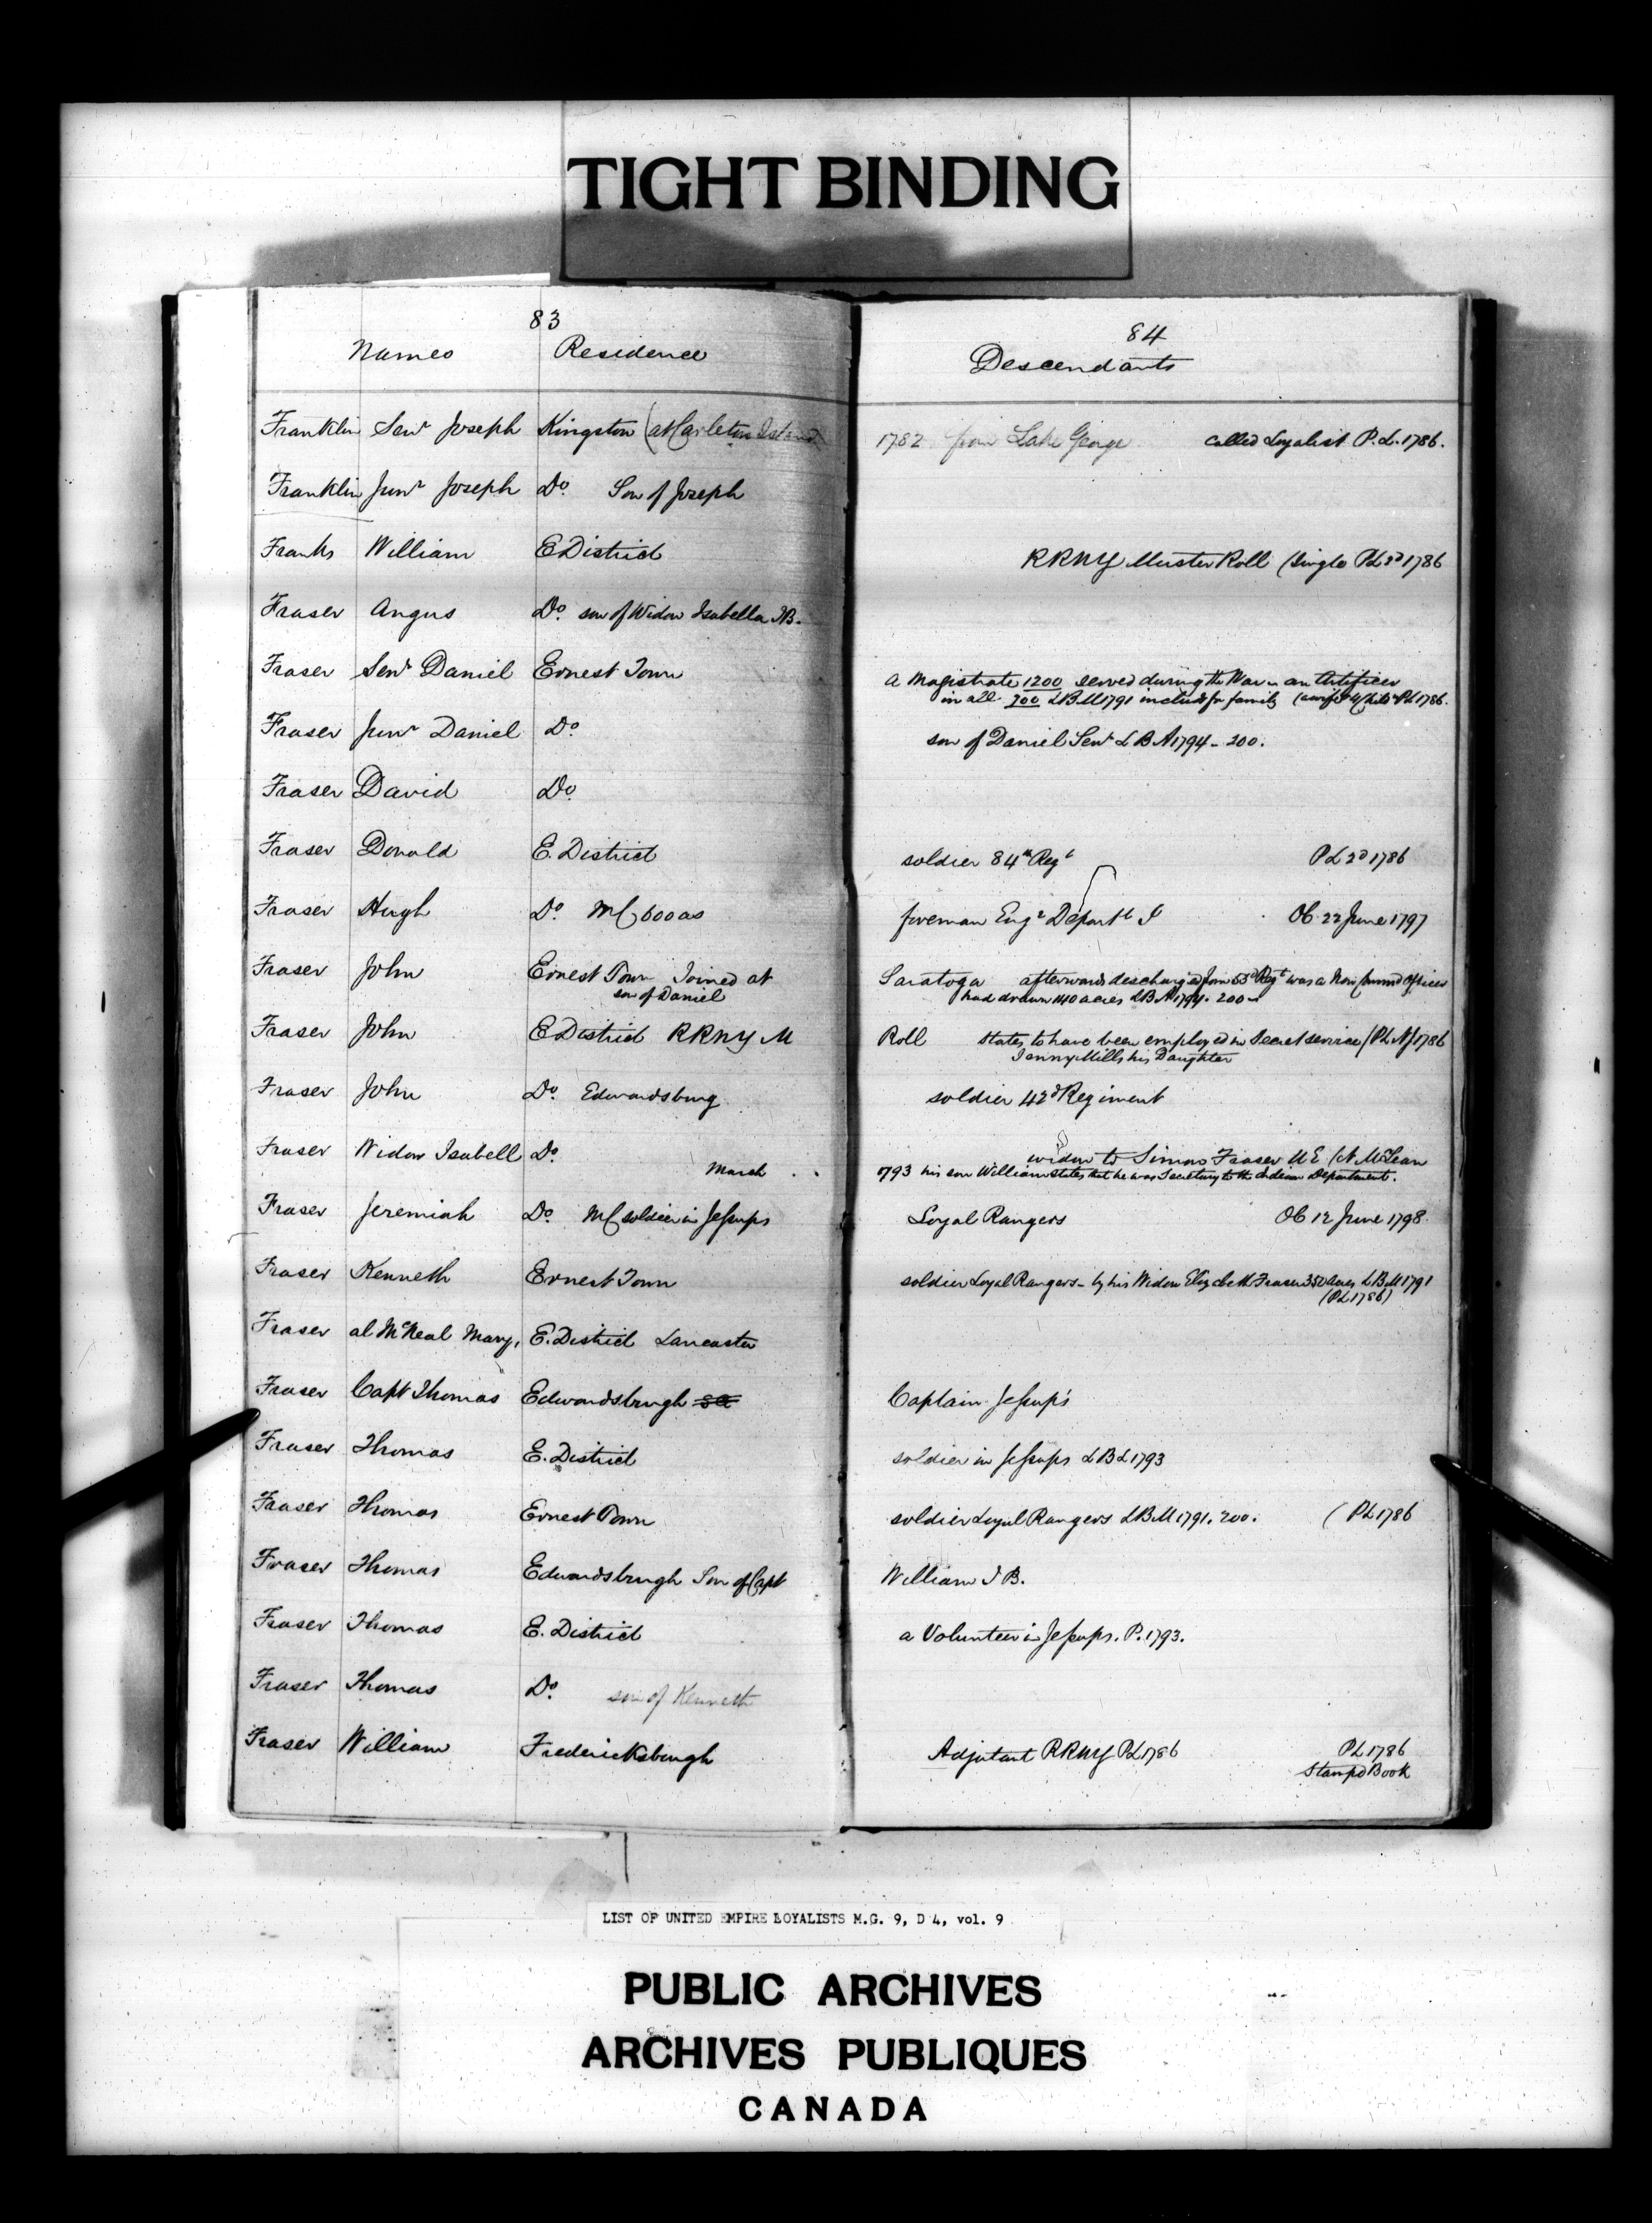 TIGHT BINDING
83
Names Residence
84
Descendants
Franklin Senr Joseph Kingston (at Carleton Island 1782 from Lake George called Loyalist P.L. 1786.
Franklin Junr Joseph Do Son of Joseph
Franks William E District RRNY Muster Roll (single PL 2d 1786
Fraser Angus Do son of Widow Isabella IB.
Fraser Senr Daniel Ernest Town a Magistrate 1200 served during the War as an Artificer
in all 700 LBM 1791 includg for family PL 1786.
Fraser Junr Daniel Do son of Daniel Senr LBA 1794 - 200.
Fraser David Do
Fraser Donald E. District soldier 84th Regt PL 2d 1786
Fraser Hugh Do MC 600 as foreman Engr Departt Ob 22 June 1797
Fraser John Ernest Town Joined at Saratoga afterwards descharged from 53d Regt was a Non Commd Officer
son of Daniel had drawn 140 acres LBA 1794. 200
Fraser John E District RRNY M Roll states to have been employed in Secret service (PL NJ 1786
Jenny Mills his Daughter
Fraser John Do Edwardsburg soldier 42d Regiment
Fraser Widow Isabell Do widow to Simon Fraser UE
March 1793 his son William states that he was Secretary to the Indian Department.
Fraser Jeremiah Do MC soldier in Jessups Loyal Rangers Ob 12 June 1798
Fraser Kenneth Ernest Town soldier Loyal Rangers - by his Widow Elizabeth Fraser 350 acres LBM 1791
(PL 1786)
Fraser al McNeal Mary, E. District Lancaster
Fraser Capt Thomas Edwardsburgh Captain Jessup's
Fraser Thomas E. District soldier in Jessups LBL 1793
Fraser Thomas Ernest Town soldier Loyal Rangers LBM 1791. 200. (PL 1786
Fraser Thomas Edwardsburgh Son of Capt William I B.
Fraser Thomas E. District a Volunteer in Jessups. P. 1793.
Fraser Thomas Do son of Kenneth
Fraser William Fredericksburgh Adjutant RRNY PL 1786 PL 1786
Stampd Book
LIST OF UNITED EMPIRE LOYALISTS M.G. 9, D 4, vol. 9
PUBLIC ARCHIVES
ARCHIVES PUBLIQUES
CANADA